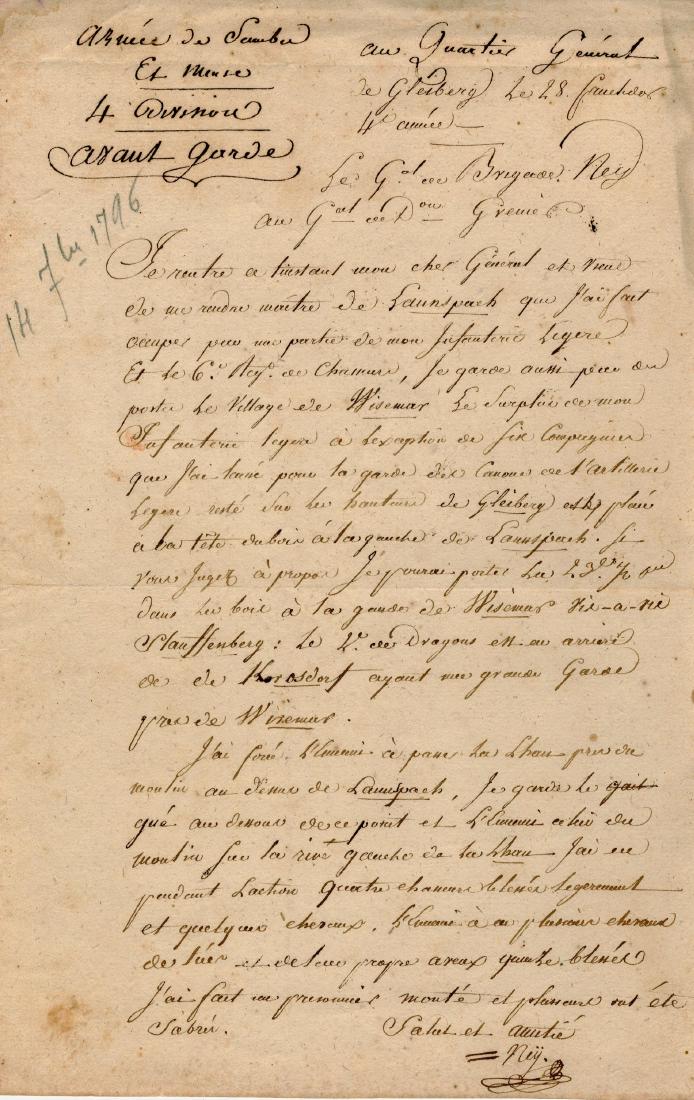 Armée de Sambre
Et Meuse
4 Division
avant garde
au Quartier Général
de Gleiberg Le 28 fructidor
4e année
Le Gal de Brigade Ney
au Gal de Don Grenier
14 7bre 1796
Je rentre a linstant mon cher Général et viens
de me rendre maitre de Launspach que J'ai fait
occuper par une partie de mon Infanterie Legere
Et Le 6e Regt de Chasseurs, Je garde aussi par des
postes Le Village de Wisemar Le Surplus de mon
Infanterie legere à Lexception de Six Compagnies
que J'ai laissé pour la garde des Canons de l'artillerie
Legere resté sur les hauteurs de Gleiberg est placé
a la tête du bois à la gauche de Launspach. Si
vous Jugez à propos Je pourai porter La
dans les bois à la gauche de Wisemar vis-a-vis
Stauffenberg : le 2e de Dragons est en arriere
de de Krosdorf ayant une grande Garde
pres de Wisemar.
J'ai forcé L'Ennemi à passer La Lhan pres du
moulin au dessus de Launspach, Je garde le gait
gué au dessous de ce point et L'Ennemi celui du
moulin sur la rive gauche de la Lhan J'ai eu
pendant Laction quatre chasseurs blessés legerement
et quelques chevaux. L'Ennemi à eu plusieurs chevaux
de tués et de leur propre aveux quinze blessés
J'ai fait un prisonnier monté et plusieurs ont été
Sabrés.
Salut et amitié
Ney.